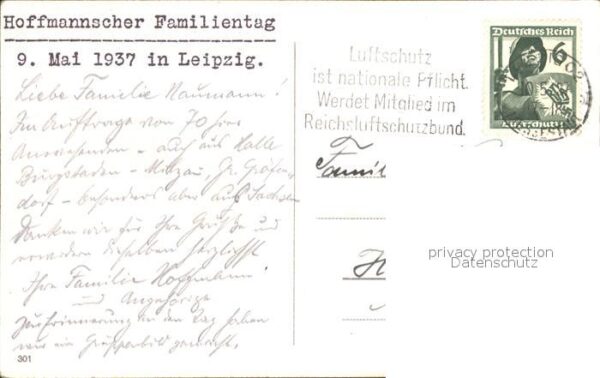 Hoffmannscher Familientag
9. Mai 1937 in Leipzig.
Liebe Familie Naumann!
Im Auftrage von 70 hier
Anwesenden - auch aus Halle
Burgstaden - Gr. Gräfen-
dorf - besonders aber aus Sachsen
Danken wir für Ihre Grüße und
erwidern dieselben herzlichst
Ihre Familie Hoffmann
und Angehörige
Zur Erinnerung an den Tag haben
wir ein Gruppenbild gemacht,
301
Luftschutz
ist nationale Pflicht.
Werdet Mitglied im
Reichsluftschutzbund.
Deutsches Reich
6
Luftschutz
Famil
H
privacy protection
Datenschutz